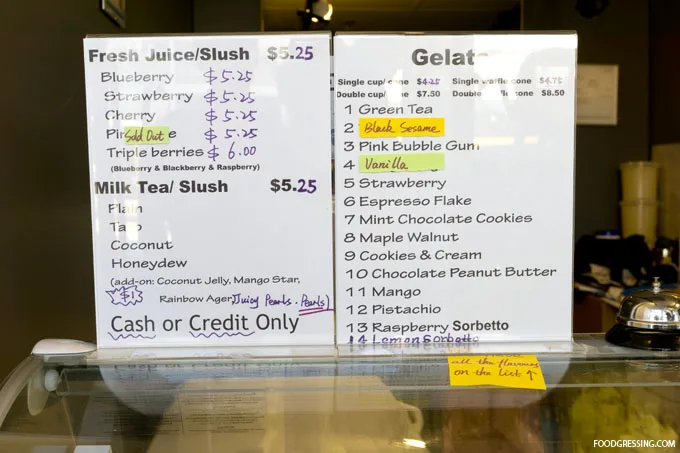 Fresh Juice/Slush $5.25
Blueberry $5.25
Strawberry $5.25
Cherry $5.25
Sold Out $5.25
Triple berries $6.00
(Blueberry & Blackberry & Raspberry)
Milk Tea/ Slush $5.25
Plain
Taro
Coconut
Honeydew
(add-on: Coconut Jelly, Mango Star,
$1 Rainbow Agar, Juicy Pearls. Pearls)
Cash or Credit Only
Gelato
Single cup/cone $4.25 Single waffle cone $6.75
Double cup/cone $7.50 Double waffle cone $8.50
1 Green Tea
2 Black Sesame
3 Pink Bubble Gum
4 Vanilla
5 Strawberry
6 Espresso Flake
7 Mint Chocolate Cookies
8 Maple Walnut
9 Cookies & Cream
10 Chocolate Peanut Butter
11 Mango
12 Pistachio
13 Raspberry Sorbetto
14 Lemon Sorbetto
all the flavours
on the list ↑
FOODGRESSING.COM